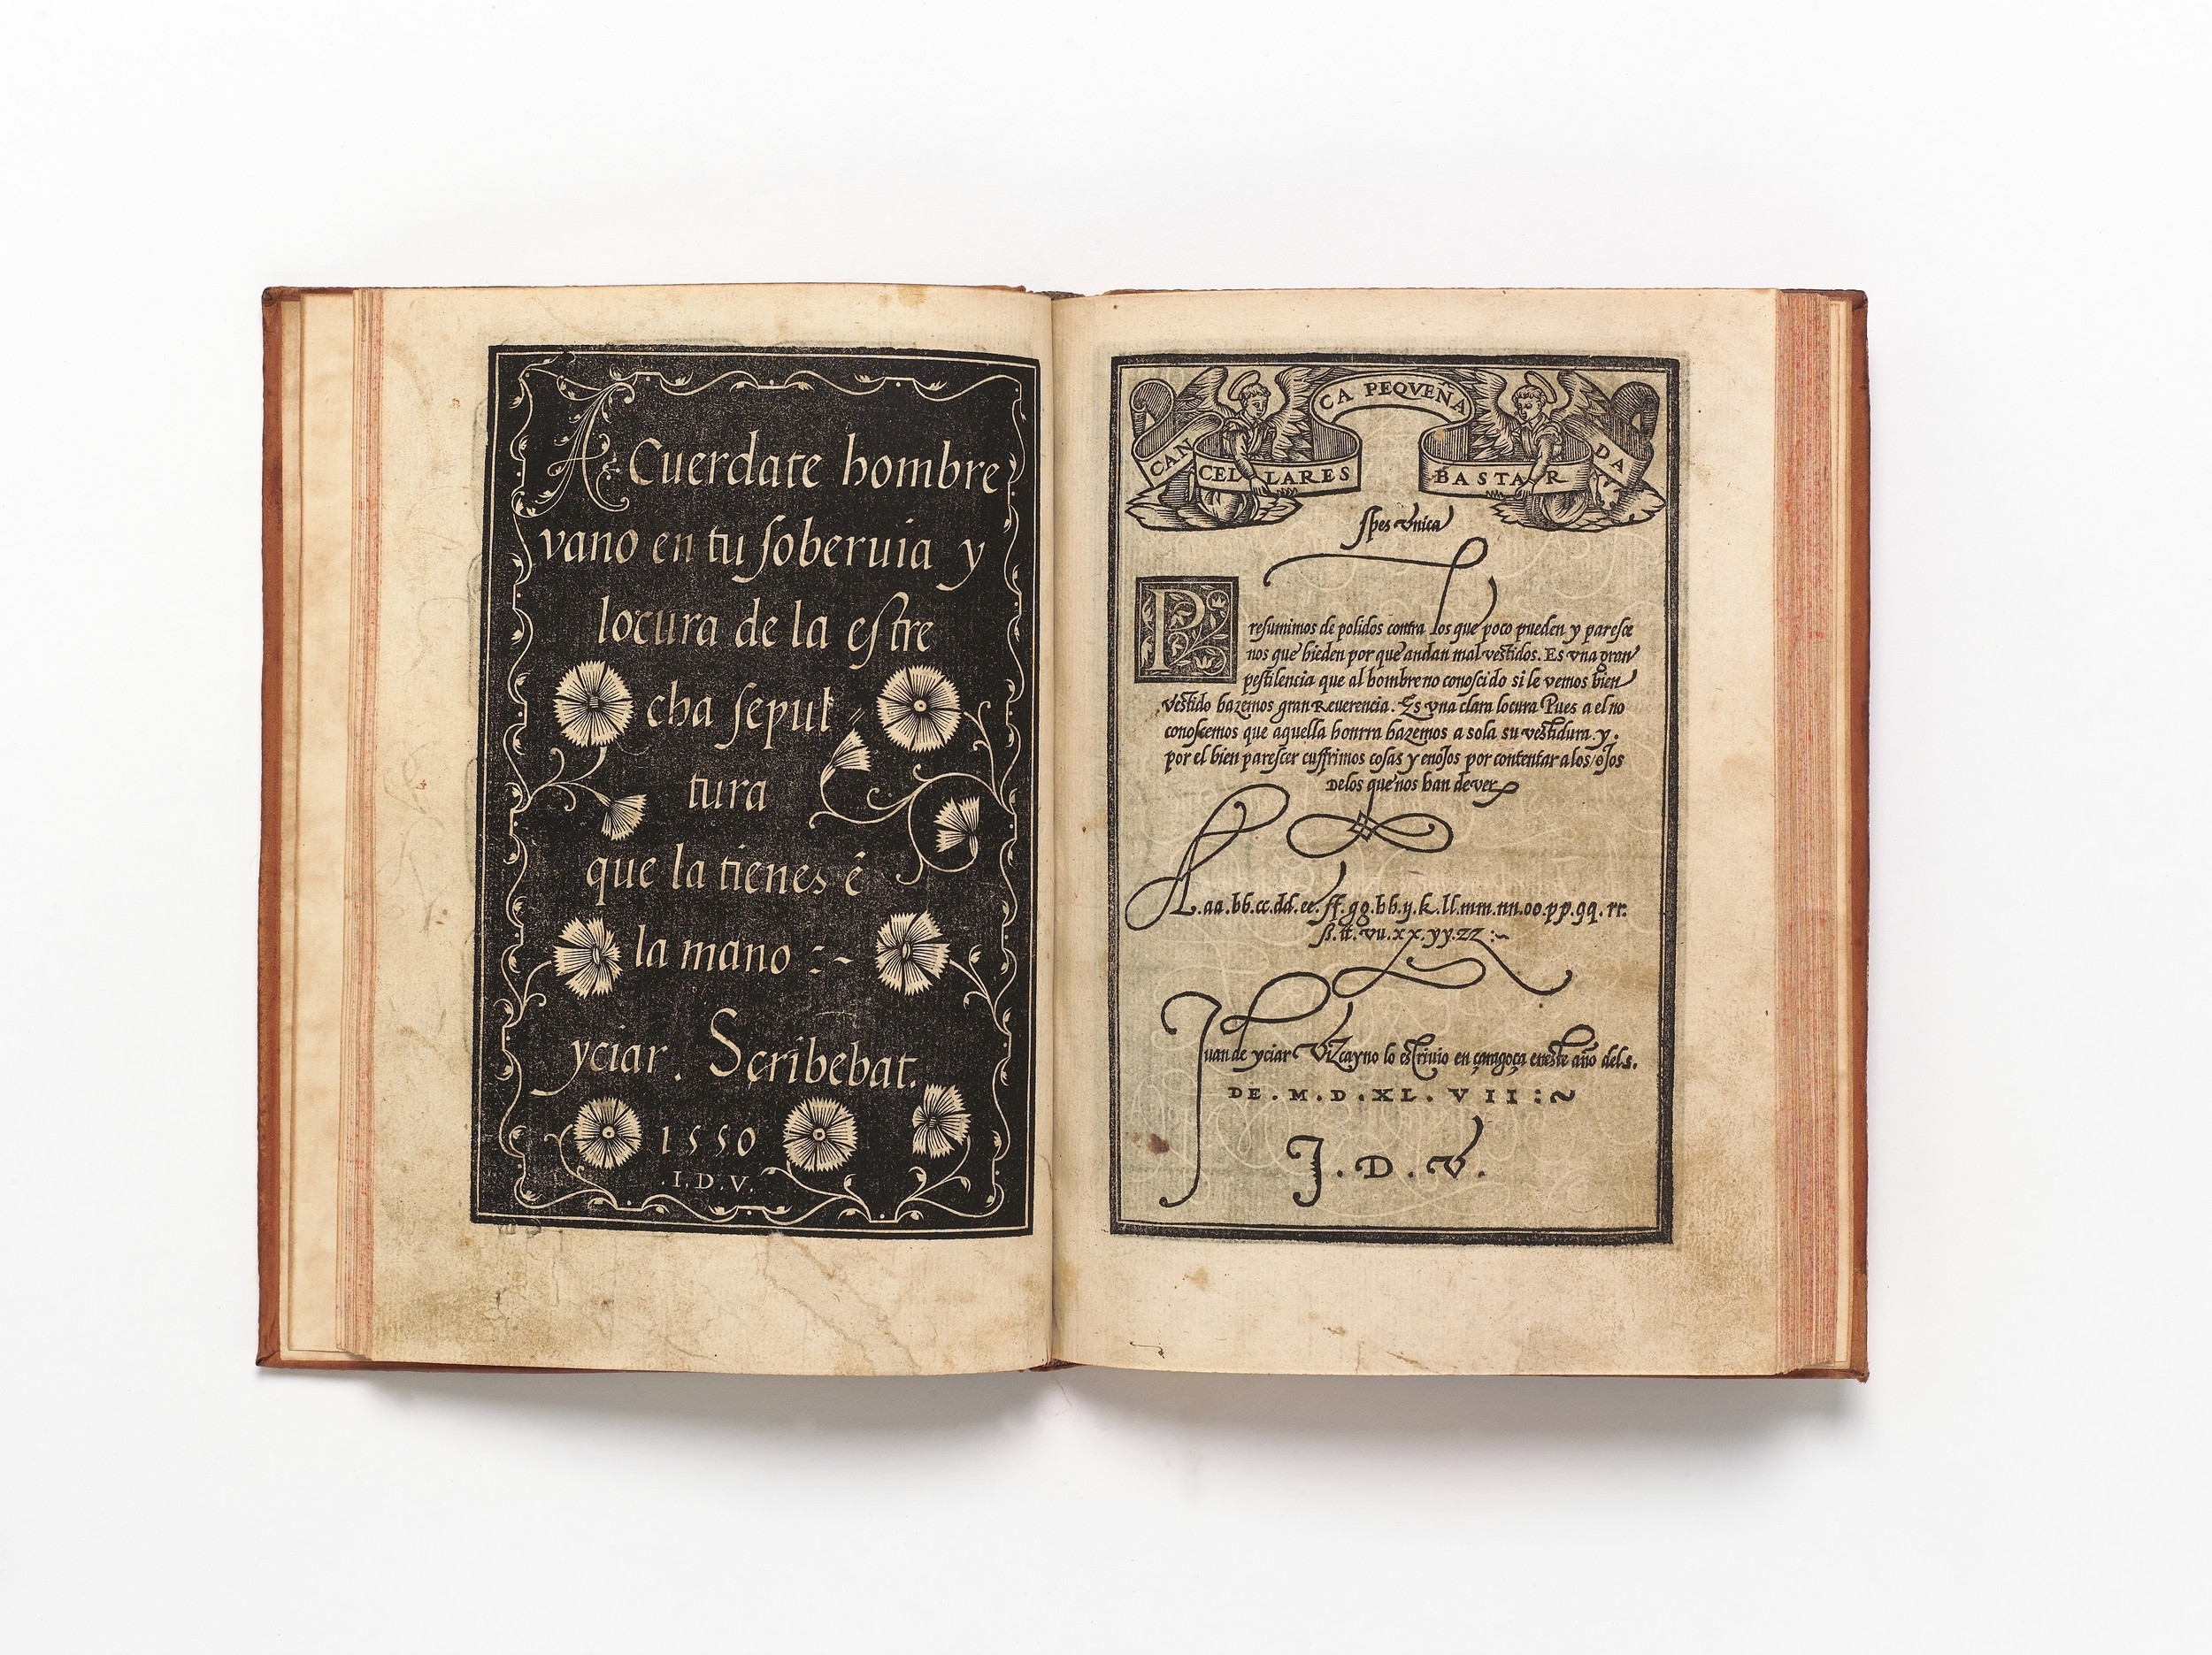 A Cuerdate hombre
vano en tu soberuia y
locura de la estre
cha sepul //
tura
que la tienes ẽ
la mano :~
yciar. Scribebat.
1550
.I.D.V.
CAN CELLARES CA PEQVEÑA BASTAR DA
Spes vnica
Presumimos de polidos contra los que poco pueden y paresce
nos que hieden por que andan mal vestidos. Es vna gran
pestilencia que al hombre no conoscido si le vemos bien
vestido hazemos gran Reuerencia. Es vna clara locura Pues a el no
conoscemos que aquella honrra hazemos a sola su vestidura. y.
por el bien parescer cuffrimos cosas y enojos por contentar a los ojos
De los que nos han de ver
A.aa.bb.cc.dd.ee.ff.gg.hh.y.k.ll.mm.nn.oo.pp.qq.rr.
ß.tt.vu.xx.yy.zz :~
Juan de yciar Vizcayno lo escriuio en çaragoça en este año del.s.
DE . M . D . XL . V I I :~
J . D . V .